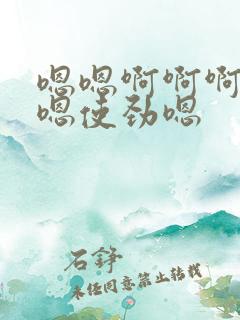 嗯嗯啊啊啊
嗯使劲嗯
石铮
未经同意禁止转载